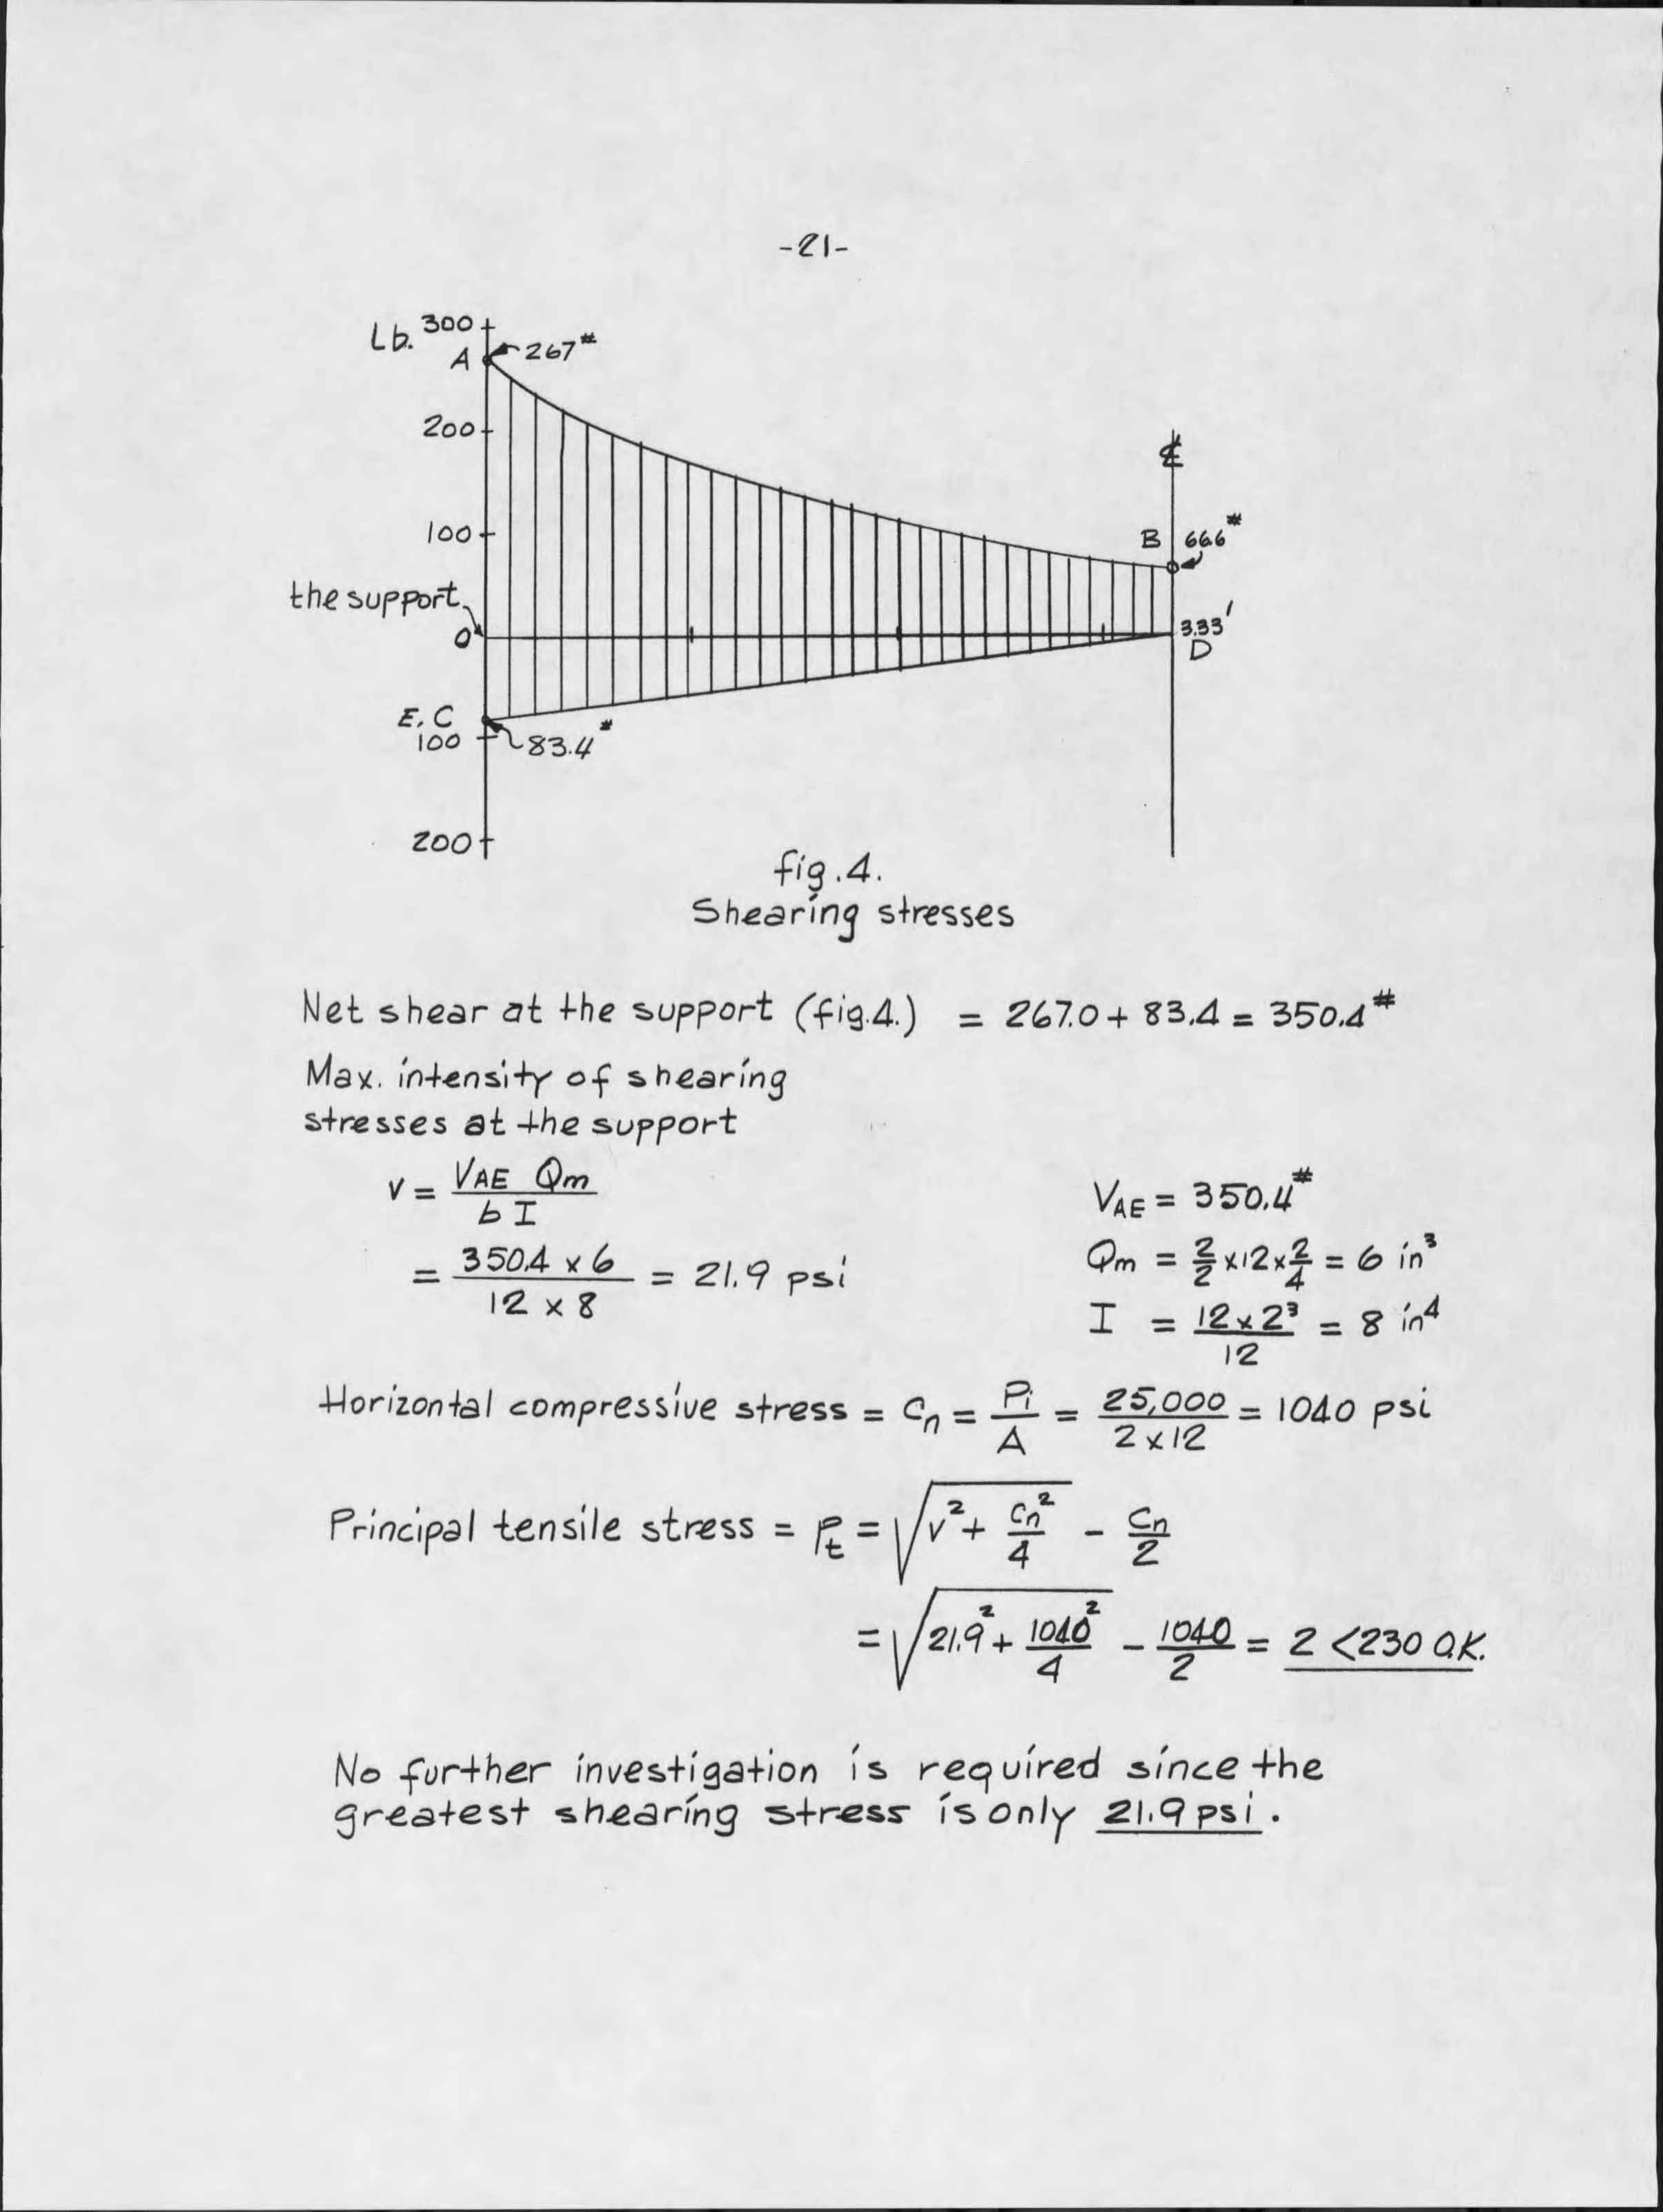 -21-
Lb. 300
A 267#
200
100
B 66.6#
the support
0
3.33'
D
E, C
100
83.4#
200
fig.4.
Shearing stresses
Net shear at the support (fig.4.) = 267.0 + 83.4 = 350.4#
Max. intensity of shearing
stresses at the support
v = V_AE Q_m / b I
V_AE = 350.4#
= 350.4 x 6 / 12 x 8 = 21.9 psi
Q_m = 2/2 x 12 x 2/4 = 6 in³
I = 12 x 2³ / 12 = 8 in⁴
Horizontal compressive stress = C_n = P_i / A = 25,000 / 2 x 12 = 1040 psi
Principal tensile stress = P_t = √(v² + C_n² / 4) - C_n / 2
= √(21.9² + 1040² / 4) - 1040 / 2 = 2 < 230 O.K.
No further investigation is required since the
greatest shearing stress is only 21.9 psi.